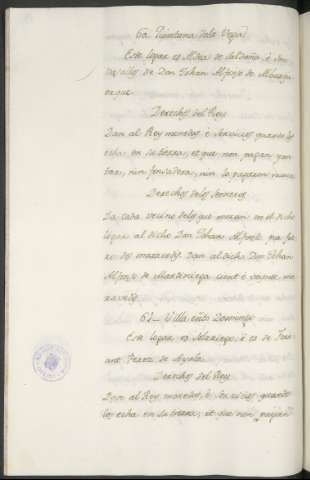 60 Quintana dela Vega
Este logar es Aldea de Saldaña, é son
de Don Johan Alfonso de Alburq
uerque
Derechos del Rey
Dan al Rey moneda é servicios quando los
echa en su tierra, et que non pagan yan
tar, nin fonsadera, nin la pagaron nunca
Derechos delos señores
Da cada vecino delos que moran en el dicho
logar al dicho Don Johan Alfonso
dos maravedis. Dan al dicho Don Johan
Alfonso de Martiniega cient é veinte ma
ravedis
61 Villa Domingo
Este logar es Solariego, é es de Ferr
ant Perez de Ayala
Derechos del Rey
Dan al Rey moneda, é servicios quando
los echa en su tierra, et que non pagan